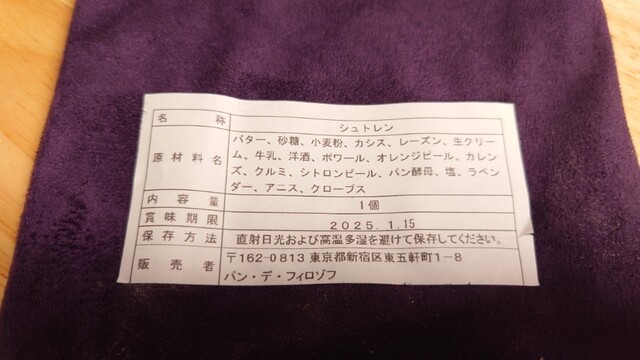 名称 シュトレン
原材料名 バター、砂糖、小麦粉、カシス、レーズン、生クリー
ム、牛乳、洋酒、ポワール、オレンジピール、カレン
ズ、クルミ、シトロンピール、パン酵母、塩、ラベン
ダー、アニス、クローブス
内容量 1個
賞味期限 2025.1.15
保存方法 直射日光および高温多湿を避けて保存してください。
販売者 〒162-0813 東京都新宿区東五軒町1-8
パン・デ・フィロゾフ